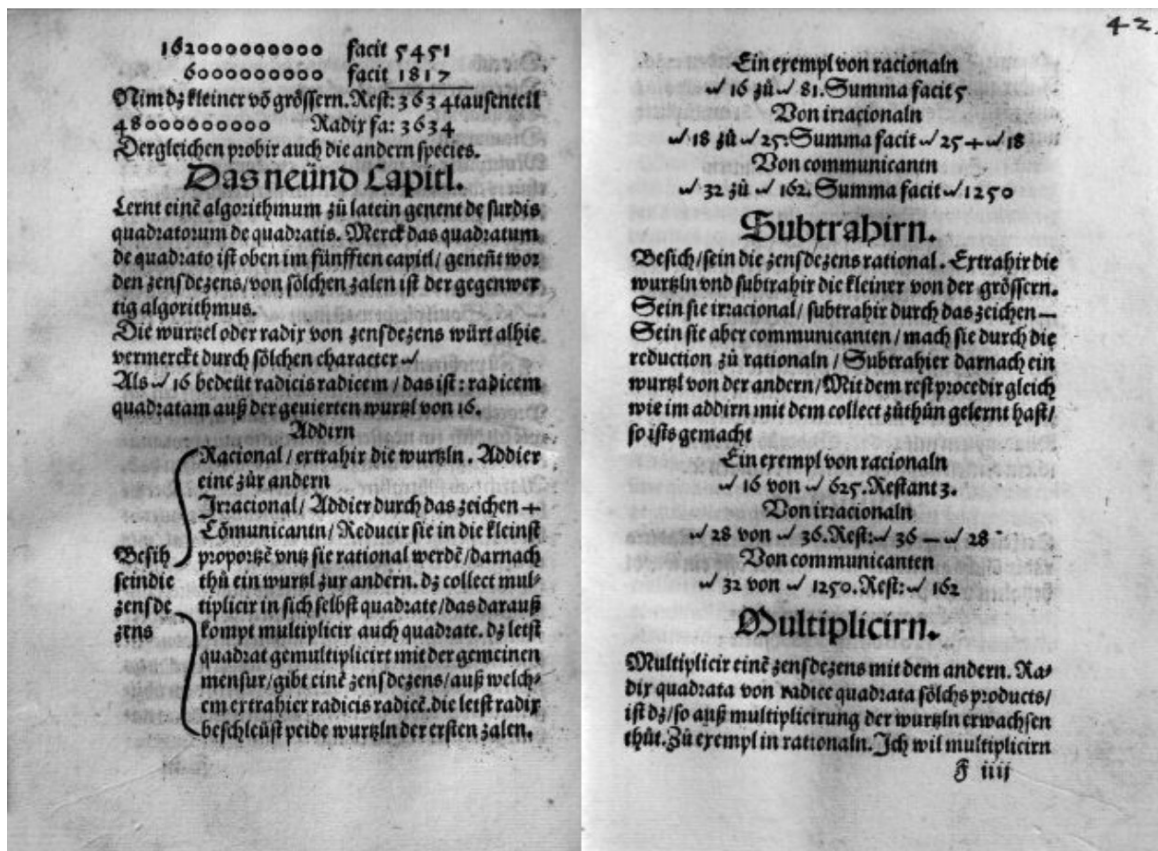 162000000000 facit 5451
6000000000 facit 1817
Nim dz kleiner vō grössern. Rest: 3634 tausenteil
48000000000 Radix fa: 3634
Dergleichen probir auch die andern species.
Das neünd Capitl.
Lernt einē algorithmum zů latein genent de surdis
quadratorum de quadratis. Merck das quadratum
de quadrato ist oben im fünfften capitl / geneñt wor
den zensdezens / von sölchen zalen ist der gegenwer
tig algorithmus.
Die wurtzel oder radix von zensdezens würt alhie
vermerckt durch sölchen character √
Als √ 16 bedeüt radicis radicem / das ist : radicem
quadratam auß der geuierten wurtzl von 16.
Addirn
Besih
seindie
zensde
zens
Racional / extrahir die wurtzln. Addier
eine zůr andern
Irracional / Addier durch das zeichen +
Cōmunicantn / Reducir sie in die kleinst
proportzē vntz sie rational werdē / darnach
thů ein wurtzl zur andern. dz collect mul-
tiplicir in sich selbst quadrate / das darauß
kompt multiplicir auch quadrate. dz letst
quadrat gemultiplicirt mit der gemeinen
mensur / gibt einē zensdezens / auß welch-
em extrahier radicis radicē. die letst radix
beschleüst peide wurtzln der ersten zalen.
42.
Ein exempl von racionaln
√ 16 zů √ 81. Summa facit 5
Von irracionaln
√ 18 zů √ 25: Summa facit √ 25 + √ 18
Von communicantn
√ 32 zů √ 162. Summa facit √ 1250
Subtrahirn.
Besich / sein die zensdezens rational. Extrahir die
wurtzln vnd subtrahir die kleiner von der grössern.
Sein sie irracional / subtrahir durch das zeichen —
Sein sie aber communicanten / mach sie durch die
reduction zů rationaln / Subtrahier darnach ein
wurtzl von der andern / Mit dem rest procedir gleich
wie im addirn mit dem collect zůthůn gelernt hast /
so ists gemacht
Ein exempl von racionaln
√ 16 von √ 625. Restant 3.
Von irracionaln
√ 28 von √ 36. Rest: √ 36 — √ 28
Von communicanten
√ 32 von √ 1250. Rest: √ 162
Multiplicirn.
Multiplicir einē zensdezens mit dem andern. Ra-
dix quadrata von radice quadrata sölchs products /
ist dz / so auß multiplicirung der wurtzln erwachsen
thůt. Zů exempl in rationaln. Ich wil multiplicirn
F iiij